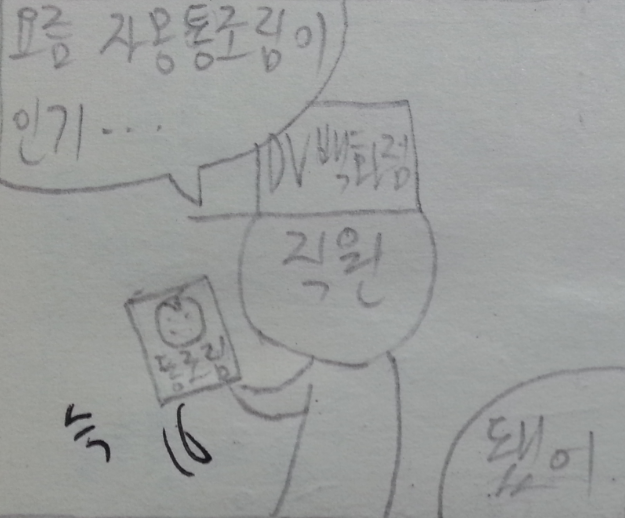 요즘 자몽통조림이
인기...
DV백화점
직원
통조림
슥
됐어